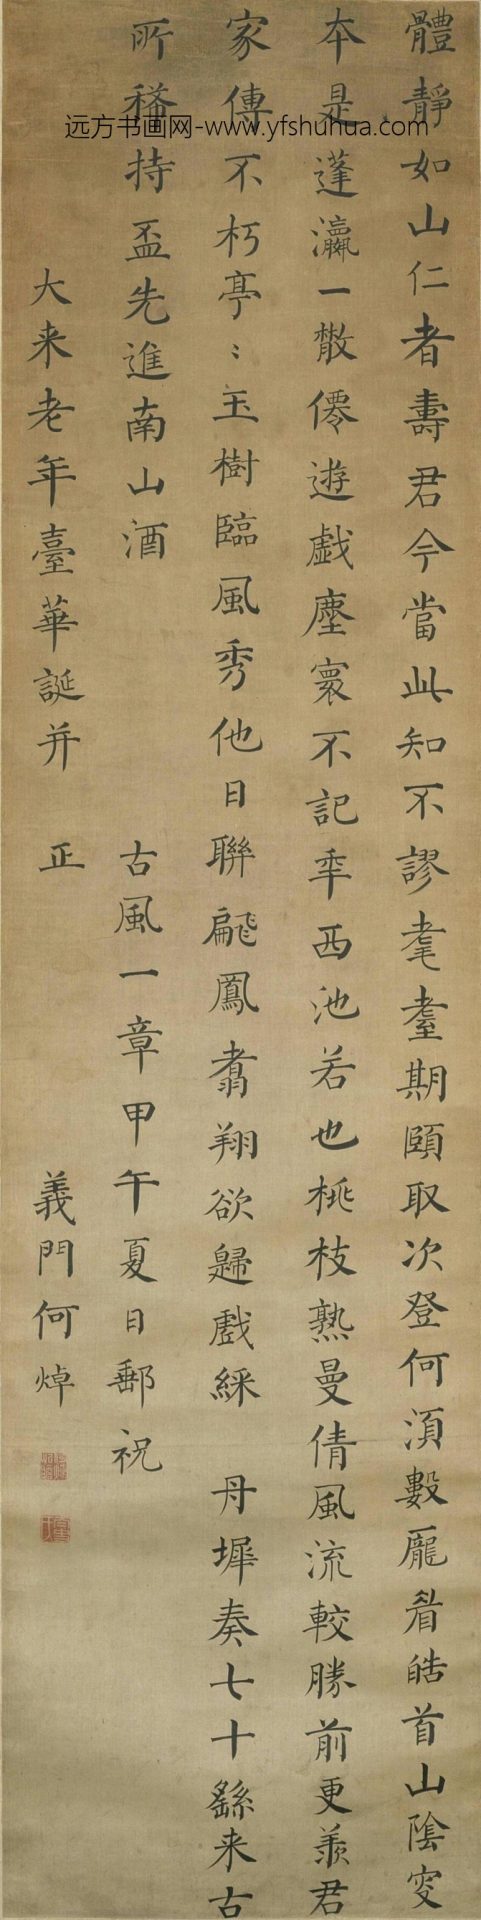 體靜如山仁者壽君今當此知不謬耄耋期頤取次登何須數龐眉皓首山陰叟
本是蓬瀛一散僊遊戲塵寰不記年西池若也桃枝熟曼倩風流較勝前更羨君
家傳不朽亭〻玉樹臨風秀他日聯翩鳳翥翔欲歸戲綵 丹墀奏七十繇来古
所稀持盃先進南山酒 古風一章甲午夏日郵祝
大来老年臺華誕并 正 義門何焯
远方书画网-www.yfshuhua.com